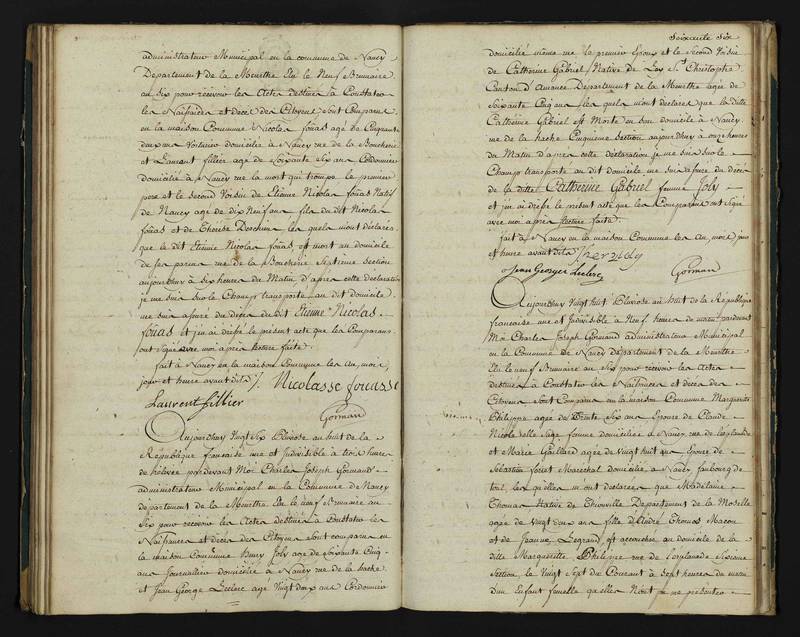 administrateur Municipal en la commune de Nancy
Departement de la Meurthe Elu le Neuf Brumaire
an six pour recevoir les Actes destinés à Constater
les Naissances et décès des Citoyens sont Comparus
en la maison Commune Nicolas fouas agé de Cinquante
deux ans Voiturier domicilié à Nancy rue de la Boucherie
et Laurent fillier age de soixante six ans Cordonnier
domicilié à Nancy rue la mort qui trompe le premier
pere et le second Voisin de Etienne Nicolas fouas Natif
de Nancy age de dix Neuf ans fils du dit Nicolas
fouas et de Thérèse les quels m'ont déclarés
que le dit Etienne Nicolas fouas est mort au domicile
de ses parens rue de la Boucherie Septieme section
aujourdhuy à Six heures du Matin d'après cette déclaration
je me suis sur le Champ transporté au dit domicile
me suis assuré du Décès du dit Etienne Nicolas
fouas et j'en ai dressé le présent acte que les Comparans
ont Signé avec moi après lecture faite.
fait à Nancy en la maison Commune les An, mois,
jour et heure avant dits /. Nicolasse fouasse
Laurent fillier
Gormand
Aujourdhuy Vingt Six Pluviose an huit de la
République francaise une et Indivisible à trois heures
de relevée pardevant Moi Charles Joseph Gormand
administrateur Municipal en la Commune de Nancy
departement de la Meurthe Elu le neuf Brumaire an
Six pour recevoir les Actes destinés à Constater les
Naissances et décès des Citoyens sont comparus en
la maison Commune Joly age de soixante Cinq
ans Journalier domicilié à Nancy rue de la hache
et Jean George Leclerc agé Vingt deux ans Cordonnier
Soixante Six
domicilié même rue le premier Epoux et le Second Voisin
de Catherine Gabriel Native de Lay St. Christophe
Canton d'Amance Departement de la Meurthe agée de
Soixante Cinq ans les quels m'ont déclaré que la ditte
Catherine Gabriel est Morte en son domicile à Nancy
rue de la hache Cinquieme Section aujourdhuy à onze heures
du Matin d'après cette déclaration je me suis sur le
Champ transporté au dit domicile me suis assuré du décès
de la ditte Catherine Gabriel femme Joly
et j'en ai dressé le présent acte que les Comparans ont Signé
avec moi après lecture faite.
fait à Nancy en la maison Commune les An, mois, jour
et heure avant dits /.
Jean George Leclerc Gormand
Aujourdhuy Vingt huit Pluviose an huit de la République
francaise une et Indivisible à Neuf heures du matin pardevant
Moi Charles Joseph Gormand administrateur Municipal
en la Commune de Nancy Departement de la Meurthe
Elu le neuf Brumaire an Six pour recevoir les Actes
destinés à Constater les Naissances et décès des
Citoyens sont Comparus en la maison Commune Marguerite
Philippe agée de Trente Six ans Epouse de Claude
Nicole Sage femme domiciliée à Nancy rue de l'esplanade
et Marie Gaillard agée de Vingt huit ans Epouse de
Sébastien foriet Marechal domicilié à Nancy faubourg de
toul, les qu'elles m'ont déclarés que Madelaine
Thomas Native de Thionville Departement de la Moselle
agée de Vingt deux ans fille d'André Thomas Macon
et de Jeanne Legrand est accouchée au domicile de la
ditte Marguerite Philippe rue de l'esplanade Sixieme
Section, le Vingt Sept du Courant à Sept heures du matin
d'un Enfant femelle qu'elles M'ont presentée